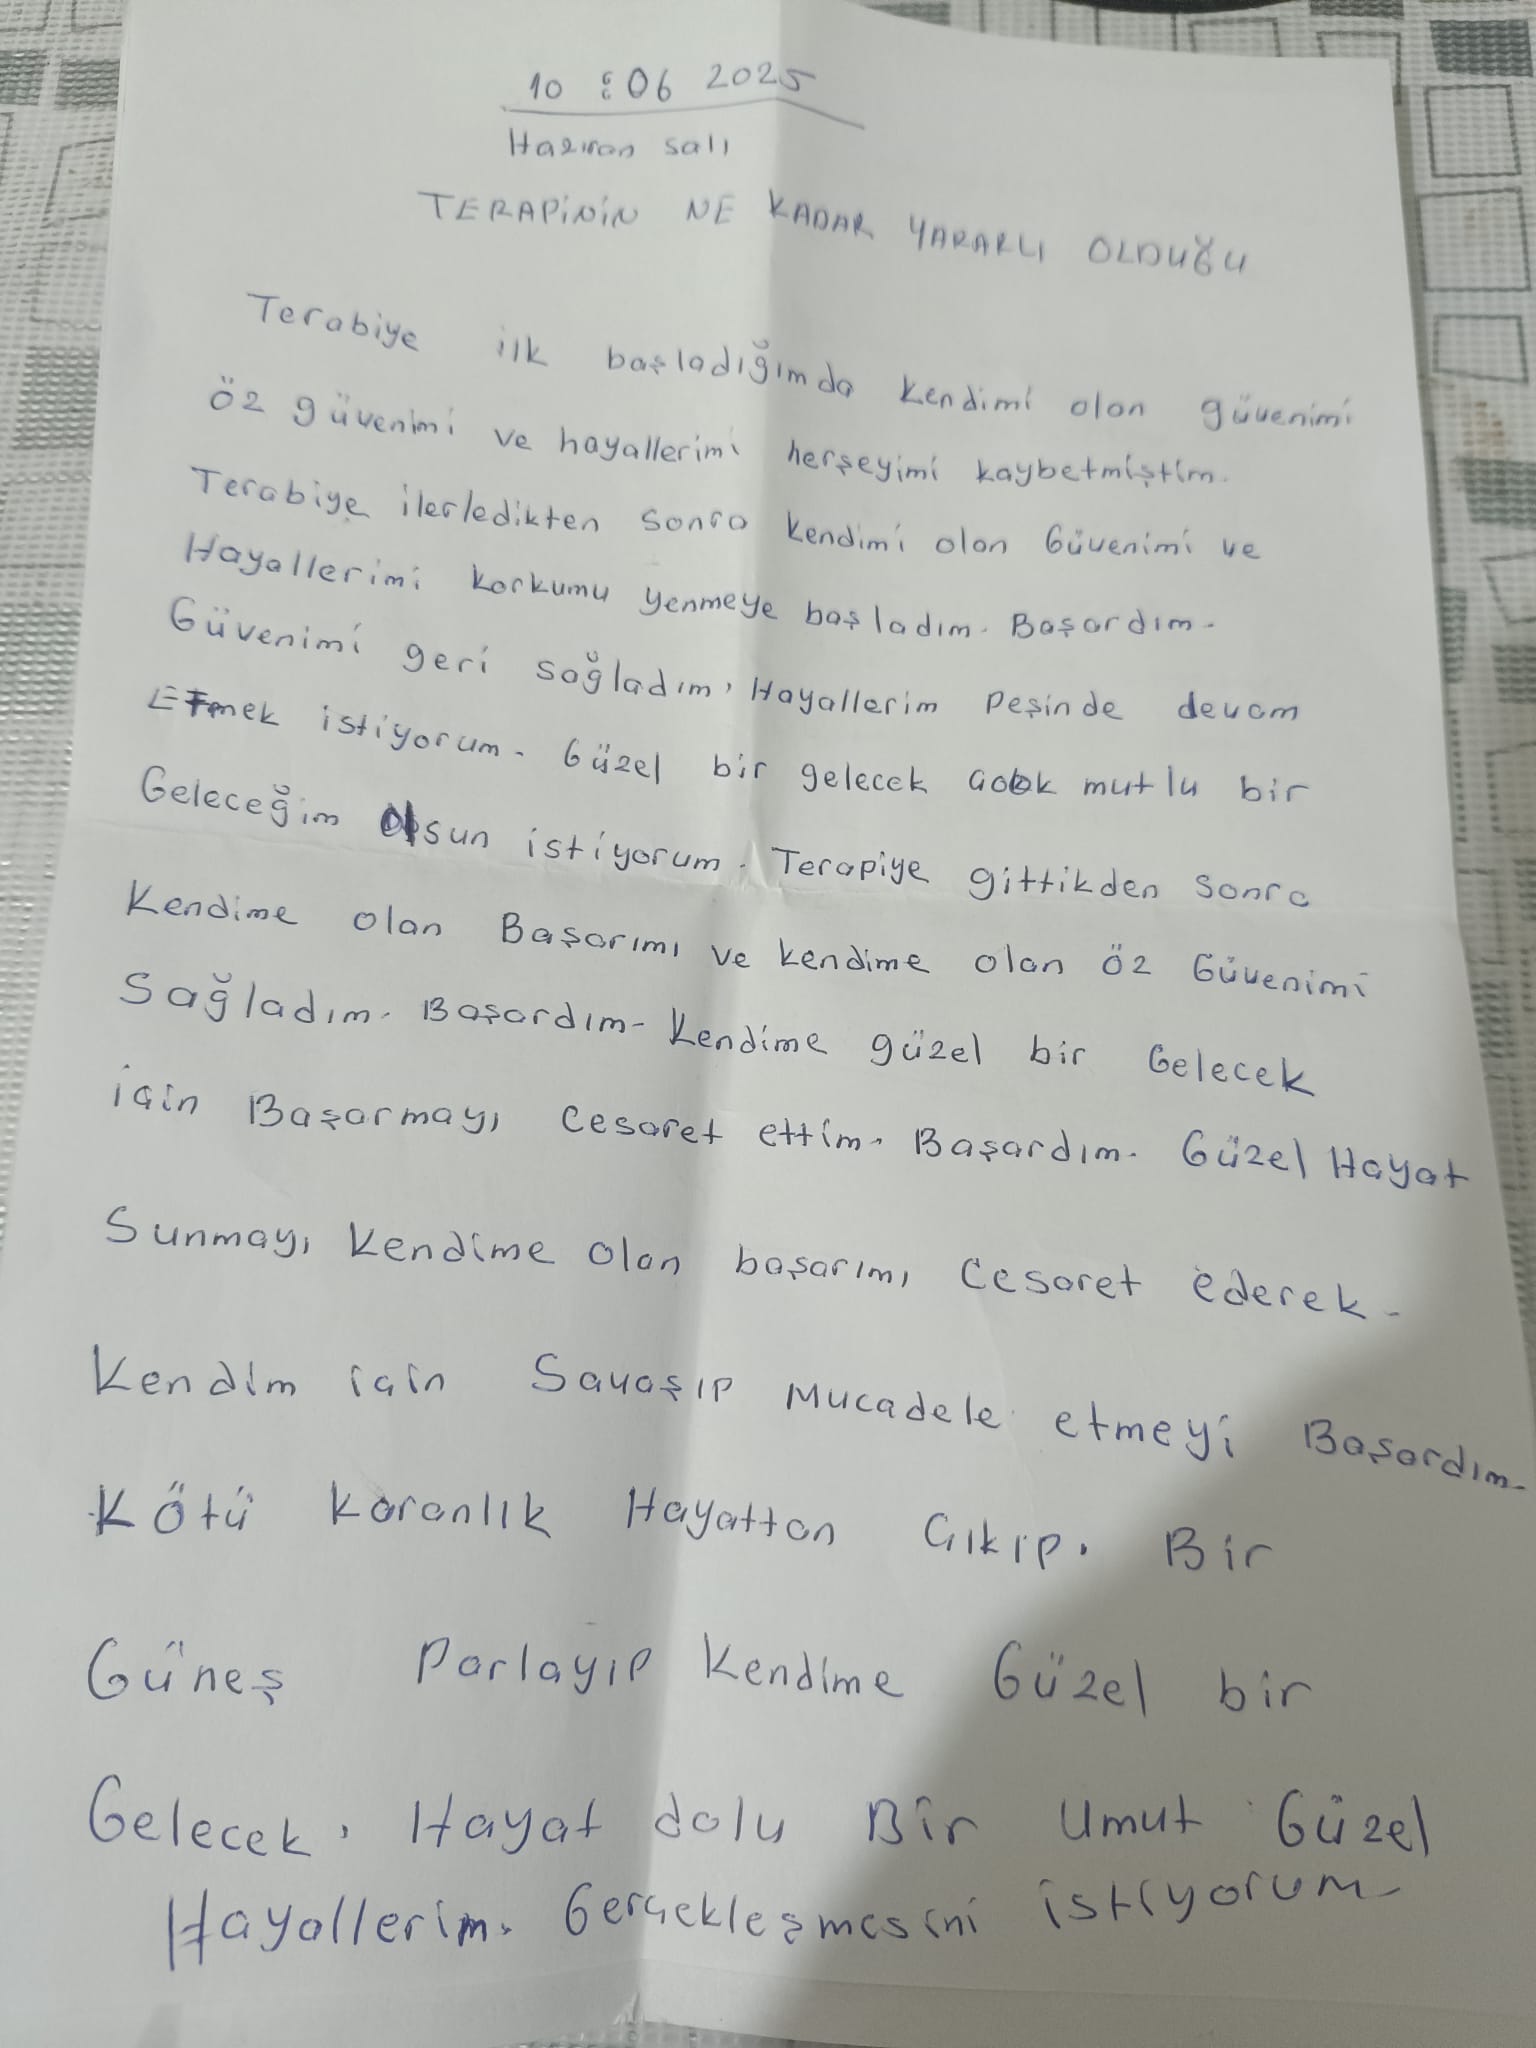 10 : 06 2025
Haziran salı
TERAPİNİN NE KADAR YARARLI OLDUĞU
Terabiye ilk başladığımda kendimi olan güvenimi
öz güvenimi ve hayallerimi herşeyimi kaybetmiştim.
Terabiye ilerledikten sonra kendimi olan Güvenimi ve
Hayallerimi korkumu yenmeye başladım. Başardım.
Güvenimi geri sağladım, Hayallerim peşinde devam
Etmek istiyorum. Güzel bir gelecek mutlu bir
Geleceğim olsun istiyorum. Terapiye gittikden sonra
Kendime olan Başarımı ve kendime olan öz Güvenimi
Sağladım. Başardım. Kendime güzel bir Gelecek
için Başarmayı cesaret ettim. Başardım. Güzel Hayat
Sunmayı kendime olan başarımı cesaret ederek.
Kendim için Savaşıp Mucadele etmeyi Başardım.
Kötü karanlık Hayattan Çıkıp. Bir
Güneş Parlayıp kendime Güzel bir
Gelecek, Hayat dolu Bir Umut Güzel
Hayallerim. Gerçekleşmesini istiyorum